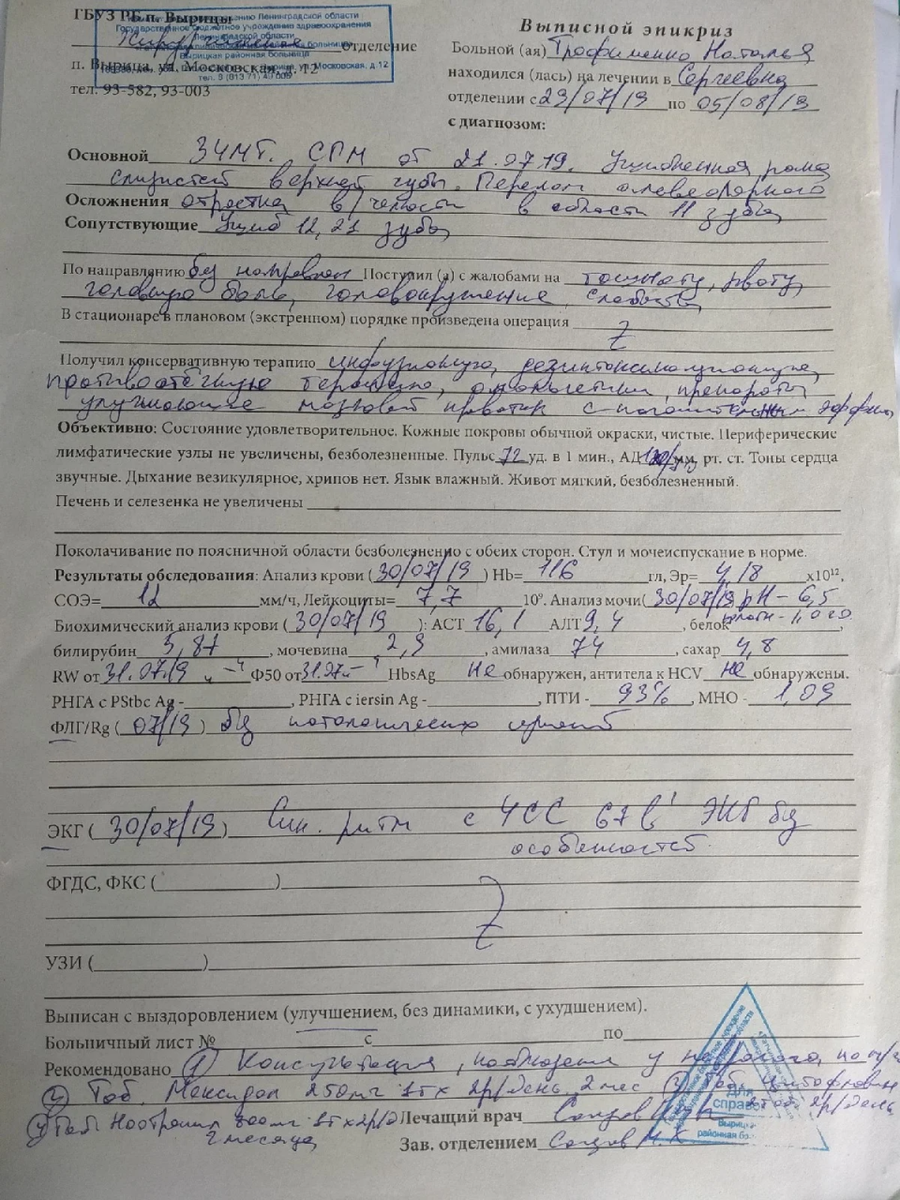 ГБУЗ РБ п. Вырицы
отделение
п. Вырица, ул. Московская, д. 12
тел. 93-582, 93-003
Выписной эпикриз
Больной (ая) Трофименко Наталья
находился (лась) на лечении в Сергеевна
отделении с 29/07/19 по 05/08/19
с диагнозом:
Основной ЗЧМТ. СГМ от 21.07.19. Ушибленная рана
слизистой верхней губы. Перелом альвеолярного
Осложнения отростка в/челюсти в области 11 зуба
Сопутствующие Ушиб 12, 21 зуба
По направлению без направлен Поступил (а) с жалобами на тошноту, рвоту,
головную боль, головокружение, слабость
В стационаре в плановом (экстренном) порядке произведена операция
Получил консервативную терапию инфузионную, дезинтоксикационную,
противоотечную терапию, анальгетики, препараты
улучшающие мозговой кровоток с положительным эффектом
Объективно: Состояние удовлетворительное. Кожные покровы обычной окраски, чистые. Периферические
лимфатические узлы не увеличены, безболезненные. Пульс 72 уд. в 1 мин., АД мм. рт. ст. Тоны сердца
звучные. Дыхание везикулярное, хрипов нет. Язык влажный. Живот мягкий, безболезненный.
Печень и селезенка не увеличены
Поколачивание по поясничной области безболезненно с обеих сторон. Стул и мочеиспускание в норме.
Результаты обследования: Анализ крови (30/07/19) Hb= 116 гл, Эр= 4,18 х10¹²,
СОЭ= 12 мм/ч, Лейкоциты= 7,7 10⁹. Анализ мочи( 30/07/19 рН - 6,5
Биохимический анализ крови (30/07/19): АСТ 16,1 АЛТ 9,4, белок
билирубин 5,87, мочевина 2,9, амилаза 74, сахар 4,8
RW от 31.07.19 Ф50 от HbsAg не обнаружен, антитела к HCV не обнаружены.
РНГА с PStbc Ag -, РНГА с iersin Ag -, ПТИ - 93%, МНО - 1,09
ФЛГ/Rg (07/19) без патологических
ЭКГ ( 30/07/19 ) Син. ритм с ЧСС 67 в 1' ЭКГ без
особенностей.
ФГДС, ФКС ( )
УЗИ ( )
Выписан с выздоровлением (улучшением, без динамики, с ухудшением).
Больничный лист № с по
Рекомендовано 1) Консультация, наблюдения у невролога
2) Таб. Мексидол 250мг 1т х 2р/день 2 мес
2р/день
Лечащий врач
2 месяца
Зав. отделением